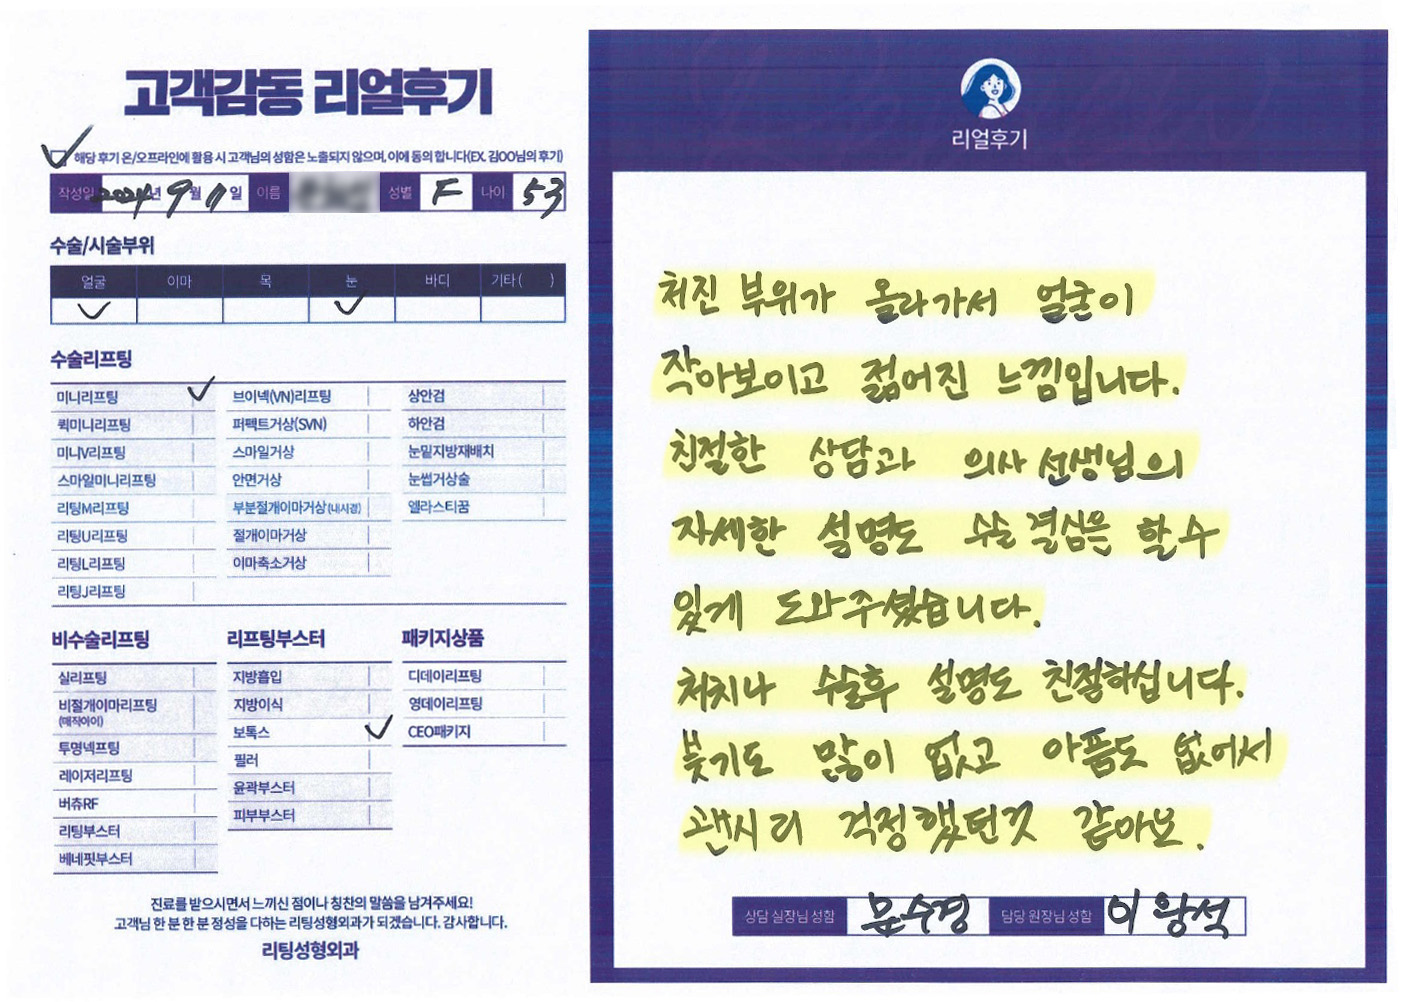 고객감동 리얼후기
해당 후기 온/오프라인에 활용 시 고객님의 성함은 노출되지 않으며, 이에 동의 합니다(EX. 김OO님의 후기)
작성일 2024년 9월 11일 이름 성별 F 나이 53
수술/시술부위
얼굴 이마 목 눈 바디 기타 ( )
수술리프팅
미니리프팅 브이넥(VN)리프팅 상안검
퀵미니리프팅 퍼펙트거상(SVN) 하안검
미니V리프팅 스마일거상 눈밑지방재배치
스마일미니리프팅 안면거상 눈썹거상술
리팅M리프팅 부분절개이마거상(내시경) 엘라스티꿈
리팅U리프팅 절개이마거상
리팅L리프팅 이마축소거상
리팅J리프팅
비수술리프팅
실리프팅
비절개이마리프팅
(매직아이)
투명넥프팅
레이저리프팅
버츄RF
리팅부스터
베네핏부스터
리프팅부스터
지방흡입
지방이식
보톡스
필러
윤곽부스터
피부부스터
패키지상품
디데이리프팅
영데이리프팅
CEO패키지
진료를 받으시면서 느끼신 점이나 칭찬의 말씀을 남겨주세요!
고객님 한 분 한 분 정성을 다하는 리팅성형외과가 되겠습니다. 감사합니다.
리팅성형외과
리얼후기
처진 부위가 올라가서 얼굴이
작아보이고 젊어진 느낌입니다.
친절한 상담과 의사선생님의
자세한 설명도 수술 결심을 할 수
있게 도와주셨습니다.
처치나 수술후 설명도 친절하십니다.
붓기도 많이 없고 아픔도 없어서
괜시리 걱정했던것 같아요.
상담 실장님 성함 문수경 담당 원장님 성함 이왕석